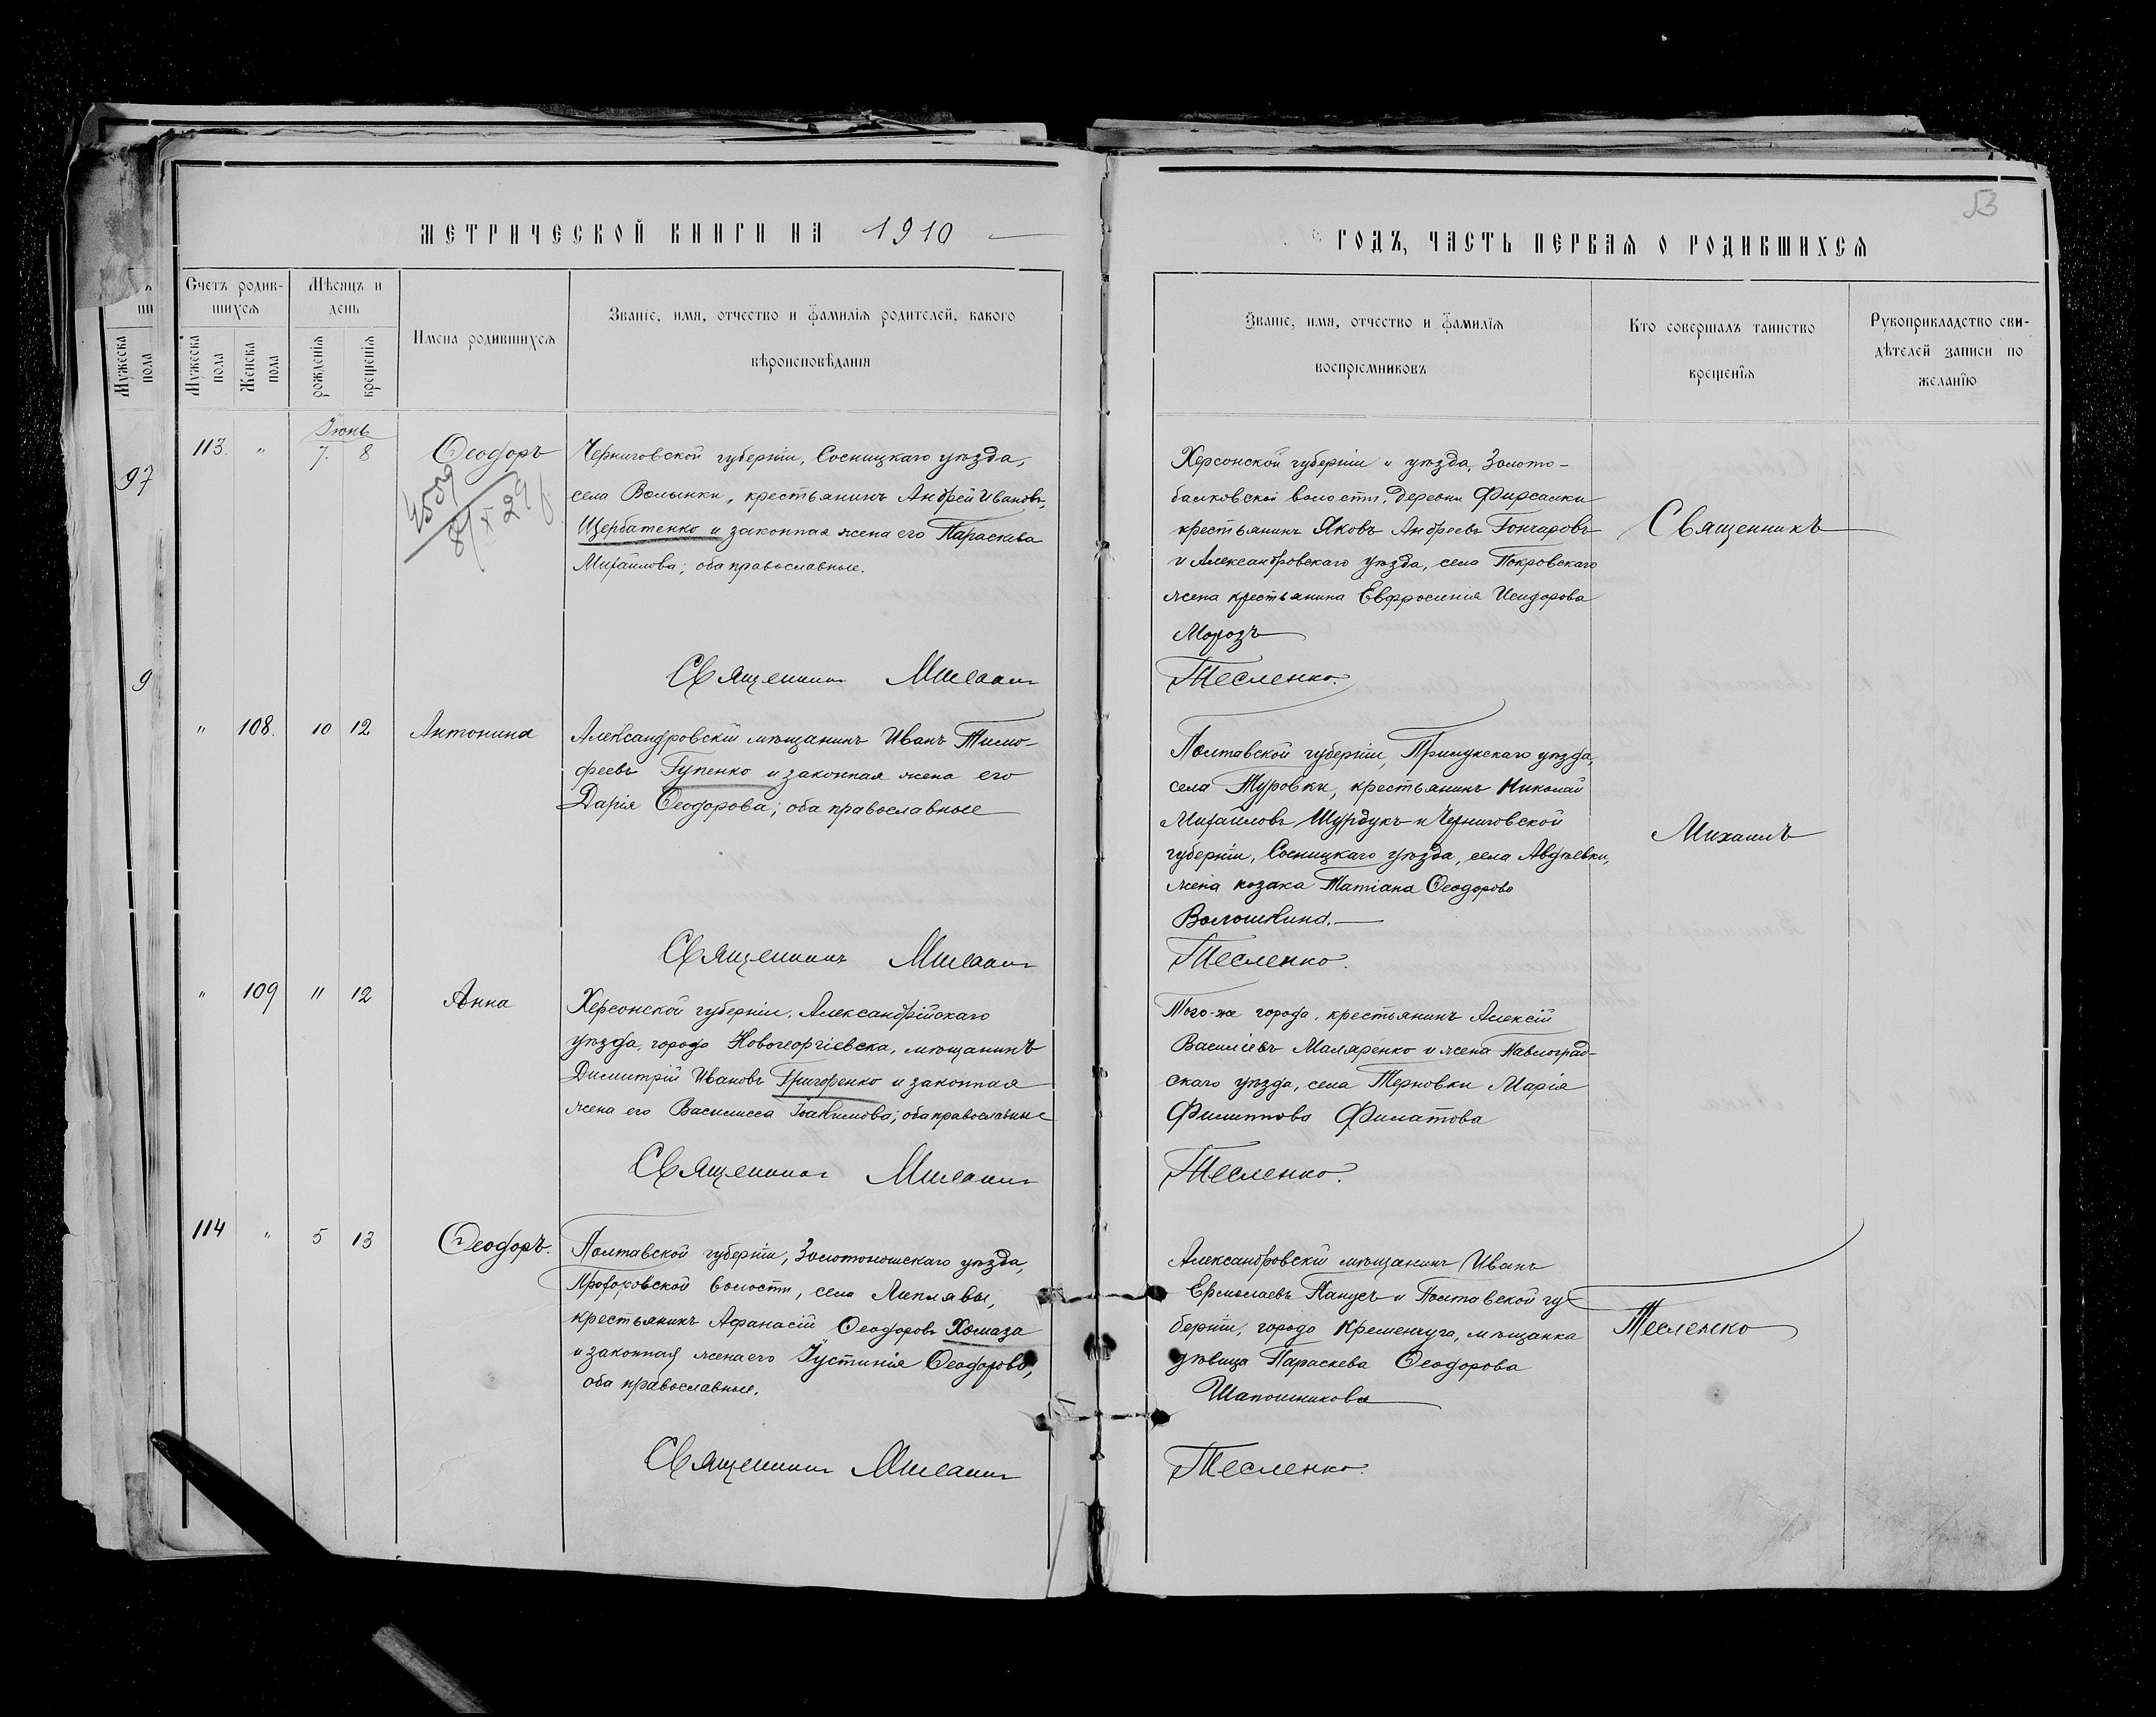 МЕТРИЧЕСКОЙ КНИГИ НА 1910
Счетъ родив-
шихся
Мѣсяцъ и
день
Имена родившихся
Званіе, имя, отчество и фамилія родителей, какого
вѣроисповѣданія
Мужеска
пола
Мужеска
пола
Женска
пола
рожденія
крещенія
97
9
Іюнь
113. " 7. 8 Ѳеодоръ
4559
Черниговской губерніи, Сосницкаго уѣзда,
села Волынки, крестьянинъ Андрей Ивановъ
Щербатенко и законная жена его Параскева
Михаилова; оба православные.
Священникъ
" 108. 10 12 Антонина
Александровскій мѣщанинъ Иванъ Тимо-
феевъ Гупенко и законная жена его
Дарія Ѳеодорова; оба православные
Священникъ
" 109 11 12 Анна
Херсонской губерніи, Александрійскаго
уѣзда, города Новогеоргіевска, мѣщанинъ
Димитрій Ивановъ Григоренко и законная
жена его Василисса Іоакимова; оба православные
Священникъ
114 " 5 13 Ѳеодоръ.
Полтавской губерніи, Золотоношскаго уѣзда,
волости, села Липлявы,
крестьянинъ Афанасій Ѳеодоровъ Хомаза
и законная жена его Іустинія Ѳеодорова;
оба православные.
Священникъ
53
ГОДЪ, ЧАСТЬ ПЕРВАЯ О РОДИВШИХСЯ
Званіе, имя, отчество и фамилія
воспріемниковъ
Кто совершалъ таинство
крещенія
Рукоприкладство сви-
дѣтелей записи по
желанію
Херсонской губерніи и уѣзда, Золото-
балковской волости, деревни Фирсовки
крестьянинъ Яковъ Андреевъ Гончаровъ
и Александровскаго уѣзда, села Покровскаго
жена крестьянина Евфросинія Исидорова
Морозъ
Тесленко.
Полтавской губерніи, Прилукскаго уѣзда,
села Туровки, крестьянинъ Николай
Михаиловъ Шурдукъ и Черниговской
губерніи, Сосницкаго уѣзда, села Авдѣевки,
жена козака Татіана Ѳеодорова
Волошкина.
Тесленко.
Того-же города, крестьянинъ Алексій
Василіевъ Маляренко и жена Павлоград-
скаго уѣзда, села Терновки Марія
Филиппова Филатова
Тесленко.
Александровскій мѣщанинъ Иванъ
Ермолаевъ и Полтавской гу-
берніи, города Кременчуга, мѣщанка
дѣвица Параскева Ѳеодорова
Шапошникова
Тесленко.
Священникъ
Михаилъ
Тесленко